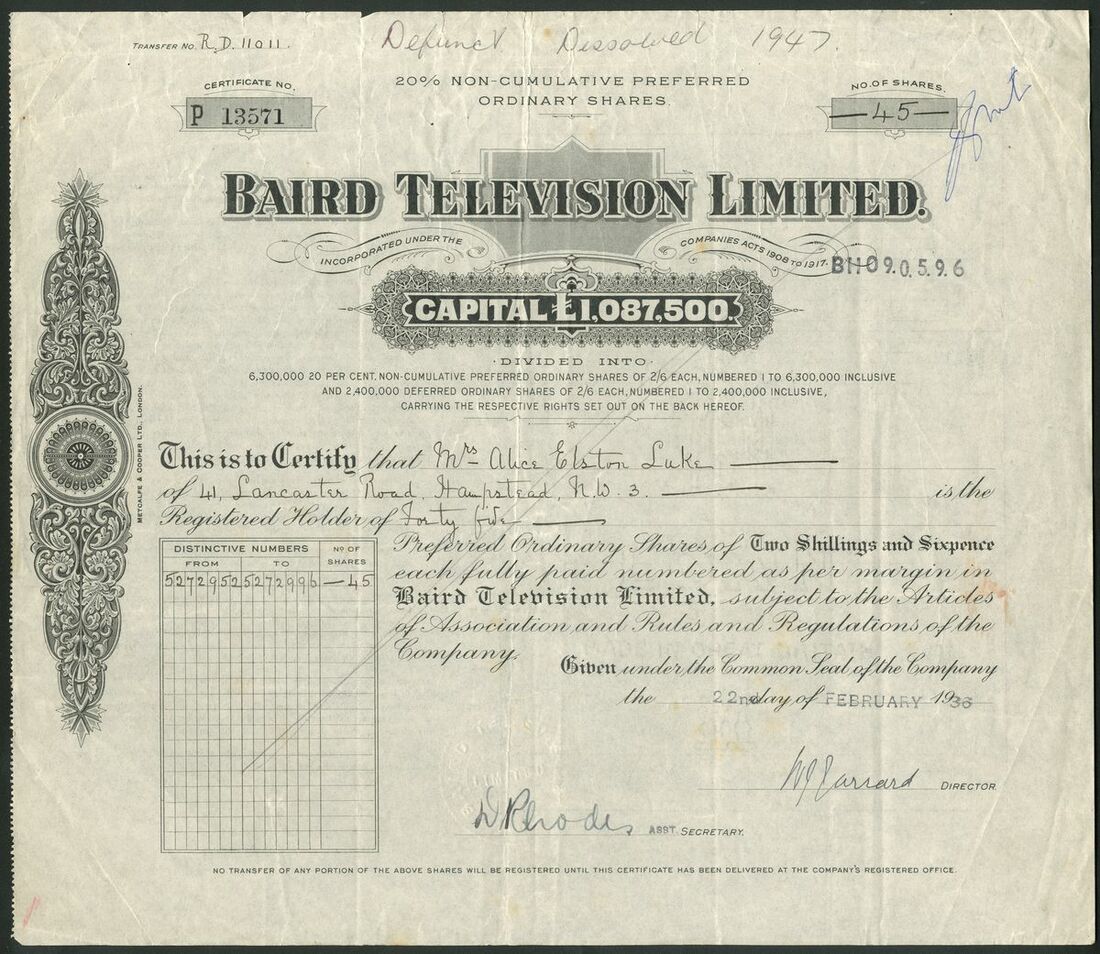 TRANSFER NO. R.D. 11011.
Defunct Dissolved 1947.
CERTIFICATE NO.
P 13571
20% NON-CUMULATIVE PREFERRED
ORDINARY SHARES.
NO. OF SHARES.
—45—
BAIRD TELEVISION LIMITED.
INCORPORATED UNDER THE COMPANIES ACTS 1908 TO 1917.
BH09.05.96
CAPITAL £1,087,500.
·DIVIDED INTO·
6,300,000 20 PER CENT. NON-CUMULATIVE PREFERRED ORDINARY SHARES OF 2/6 EACH, NUMBERED 1 TO 6,300,000 INCLUSIVE
AND 2,400,000 DEFERRED ORDINARY SHARES OF 2/6 EACH, NUMBERED 1 TO 2,400,000 INCLUSIVE,
CARRYING THE RESPECTIVE RIGHTS SET OUT ON THE BACK HEREOF.
METCALFE & COOPER LTD., LONDON.
This is to Certify that Mrs Alice Elston Luke
of 41, Lancaster Road, Hampstead, N.W. 3. is the
Registered Holder of Forty five
Preferred Ordinary Shares of Two Shillings and Sixpence
each fully paid numbered as per margin in
Baird Television Limited, subject to the Articles
of Association and Rules and Regulations of the
Company.
DISTINCTIVE NUMBERS
NO OF SHARES
FROM TO
5272952 5272996 —45
Given under the Common Seal of the Company
the 22nd day of FEBRUARY 1936
DIRECTOR.
D Rhodes ASST. SECRETARY.
NO TRANSFER OF ANY PORTION OF THE ABOVE SHARES WILL BE REGISTERED UNTIL THIS CERTIFICATE HAS BEEN DELIVERED AT THE COMPANY'S REGISTERED OFFICE.